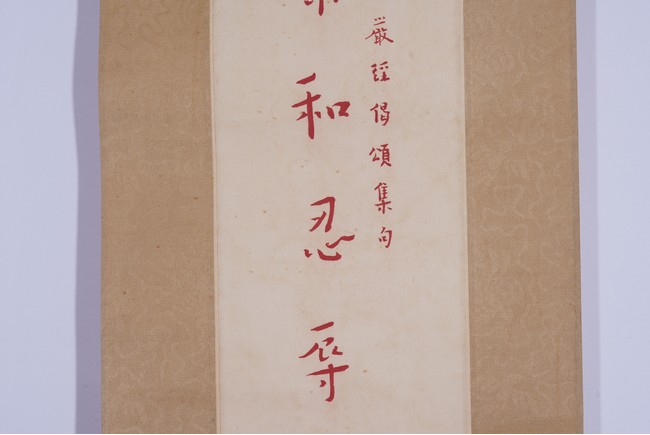 嚴經偈頌集句
和忍辱